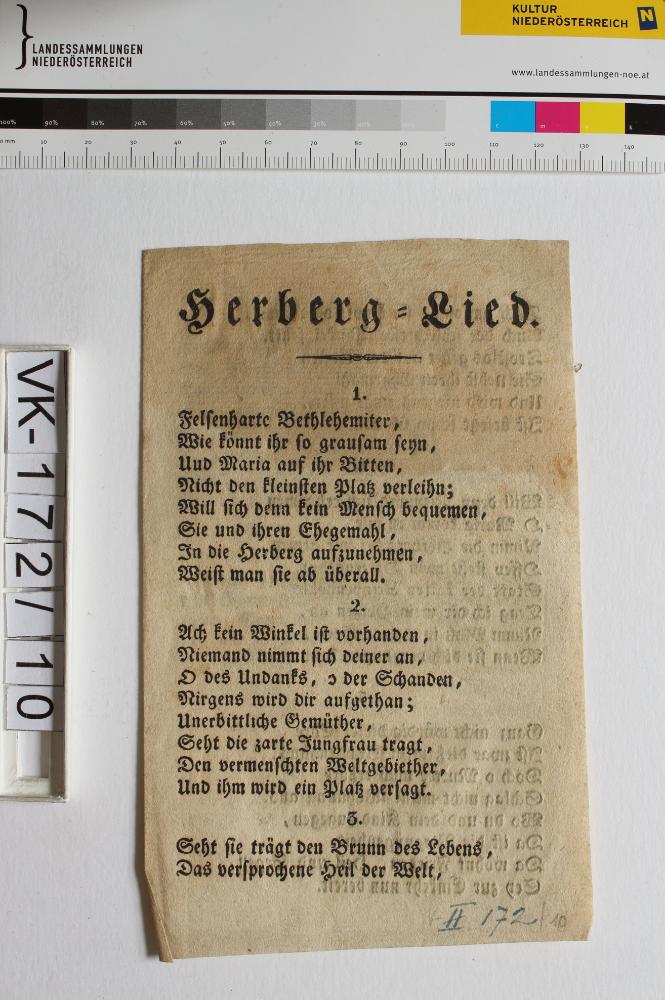 KULTUR
NIEDERÖSTERREICH N
LANDESSAMMLUNGEN
NIEDERÖSTERREICH
www.landessammlungen-noe.at
100% 90% 80% 70% 60% 50% 40% 30% 20% 10% c m y k
0 mm 10 20 30 40 50 60 70 80 90 100 110 120 130 140
VK-172/10
Herberg-Lied.
1.
Felsenharte Bethlehemiter,
Wie könnt ihr so grausam seyn,
Uud Maria auf ihr Bitten,
Nicht den kleinsten Platz verleihn;
Will sich denn kein Mensch bequemen,
Sie und ihren Ehegemahl,
In die Herberg aufzunehmen,
Weist man sie ab überall.
2.
Ach kein Winkel ist vorhanden,
Niemand nimmt sich deiner an,
O des Undanks, o der Schanden,
Nirgens wird dir aufgethan;
Unerbittliche Gemüther,
Seht die zarte Jungfrau tragt,
Den vermenschten Weltgebiether,
Und ihm wird ein Platz versagt.
3.
Seht sie trägt den Brunn des Lebens,
Das versprochene Heil der Welt,
II 172/10